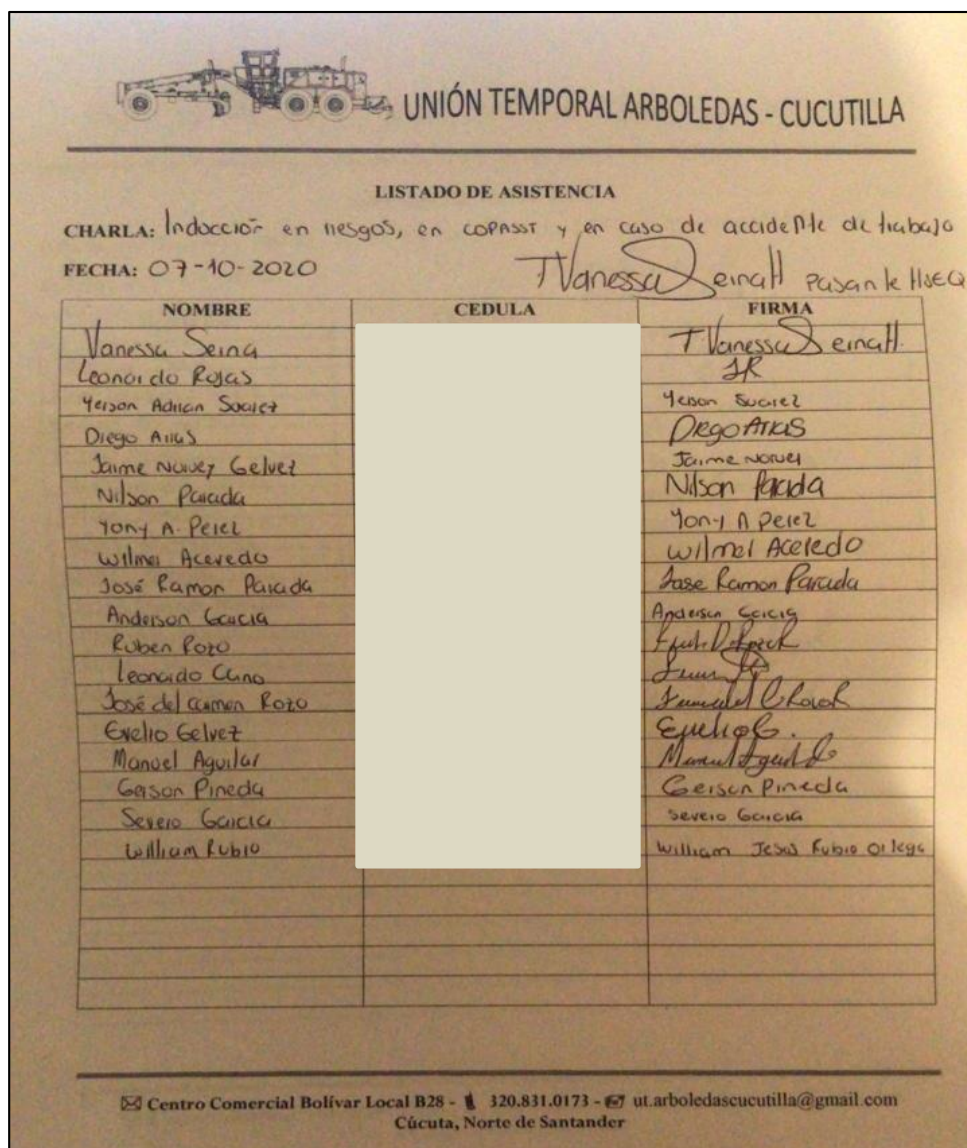 UNIÓN TEMPORAL ARBOLEDAS - CUCUTILLA
LISTADO DE ASISTENCIA
CHARLA: Inducción en riesgos, en COPASST y en caso de accidente de trabajo
FECHA: 07-10-2020 T Vanessa SernaH Pasante HSEQ
NOMBRE CEDULA FIRMA
Vanessa Serna T Vanessa SernaH.
Leonardo Rojas LR
Yerson Adrian Suarez Yerson Suarez
Diego Arias Diego Arias
Jaime Gelvez Jaime
Nilson Parada Nilson Parada
Yony A. Perez Yony A Perez
Wilmer Acevedo Wilmer Acevedo
José Ramon Parada Jose Ramon Parada
Anderson Garcia Anderson Garcia
Ruben Rozo
Leonardo Cano
José del Carmen Rozo
Evelio Gelvez Evelio G.
Manuel Aguilar Manuel
Gerson Pineda Gerson Pineda
Severo Garcia Severo Garcia
William Rubio William Jesus Rubio Ortega
Centro Comercial Bolívar Local B28 - 320.831.0173 - ut.arboledascucutilla@gmail.com
Cúcuta, Norte de Santander